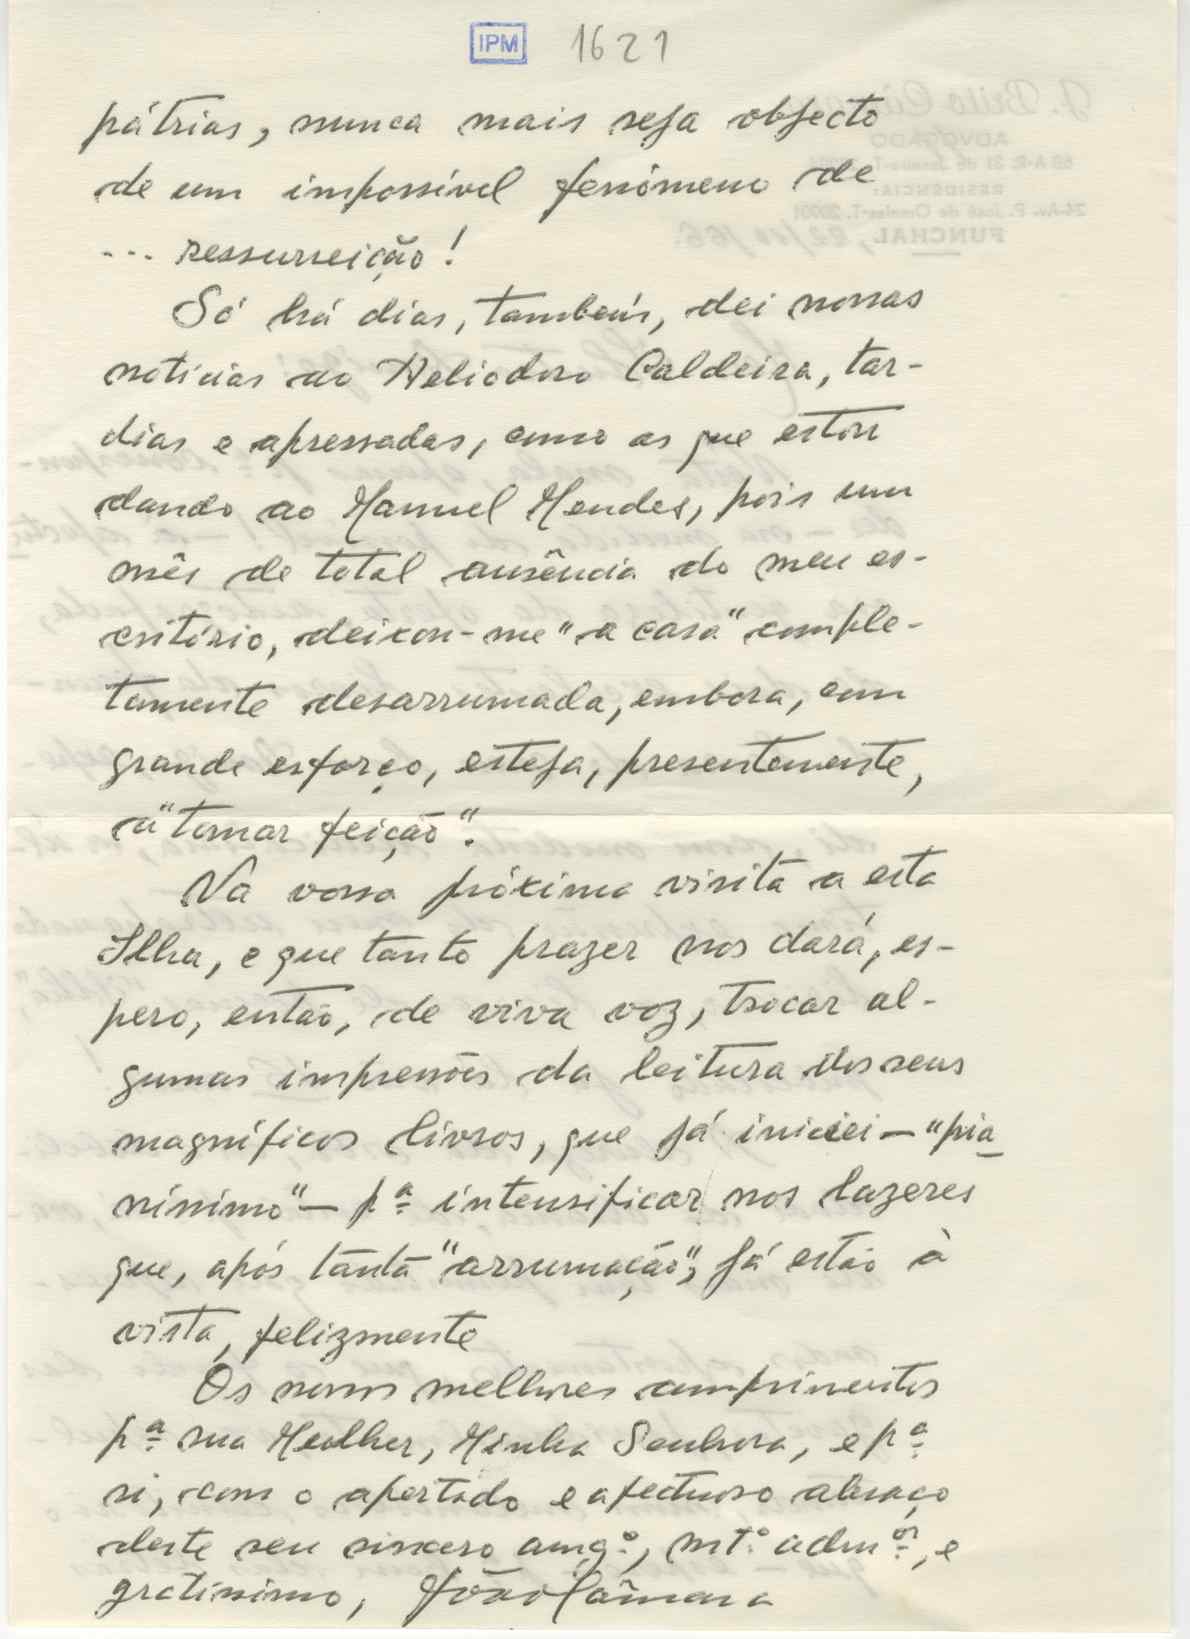 IPM 1621
pátrias, nunca mais seja objecto
de um impossível fenómeno de
... ressurreição!
Só há dias, também, dei nossas
notícias ao Heliodoro Caldeira, tar-
dias e apressadas, como as que estou
dando ao Manuel Mendes, pois um
mês de total ausência do meu es-
critório, deixou-me "a casa" comple-
tamente desarrumada, embora, com
grande esforço, esteja, presentemente,
a "tomar feição".
Na vossa próxima visita a esta
Ilha, e que tanto prazer nos dará, es-
pero, então, de viva voz, trocar al-
gumas impressões da leitura dos seus
magníficos livros, que já iniciei — "pia
níssimo" — pª intensificar nos lazeres
que, após tanta "arrumação", já estão à
vista, felizmente
Os nossos melhores cumprimentos
pª sua Mulher, Minha Senhora, e pª
si, com o apertado e afectuoso abraço
deste seu sincero amgº, mtº admºr, e
gratíssimo, João Câmara
J. Brito Câmara
ADVOGADO
RESIDÊNCIA:
FUNCHAL,